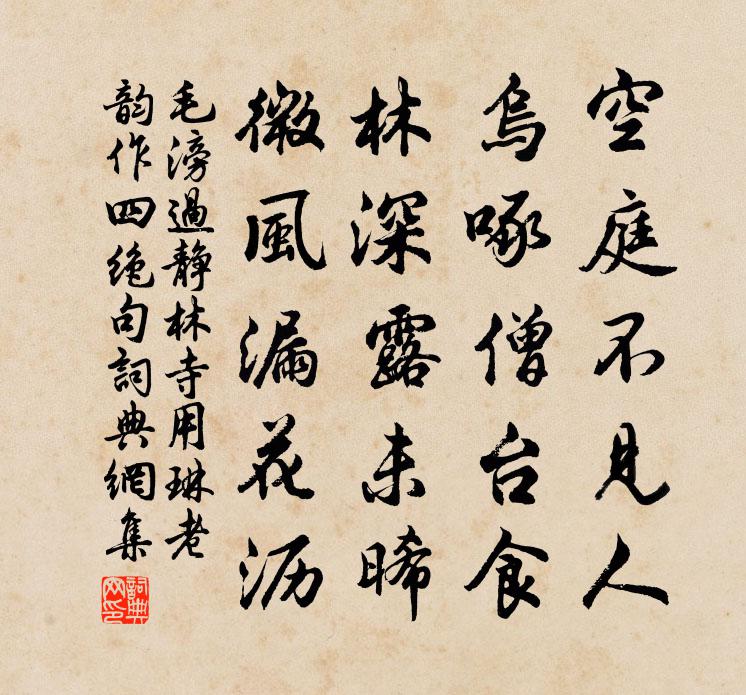 空庭不見人
烏啄僧台食
林深露未晞
微風漏花沥
毛滂過靜林寺用琳老
韵作四绝句詞典網集
詞典
网印